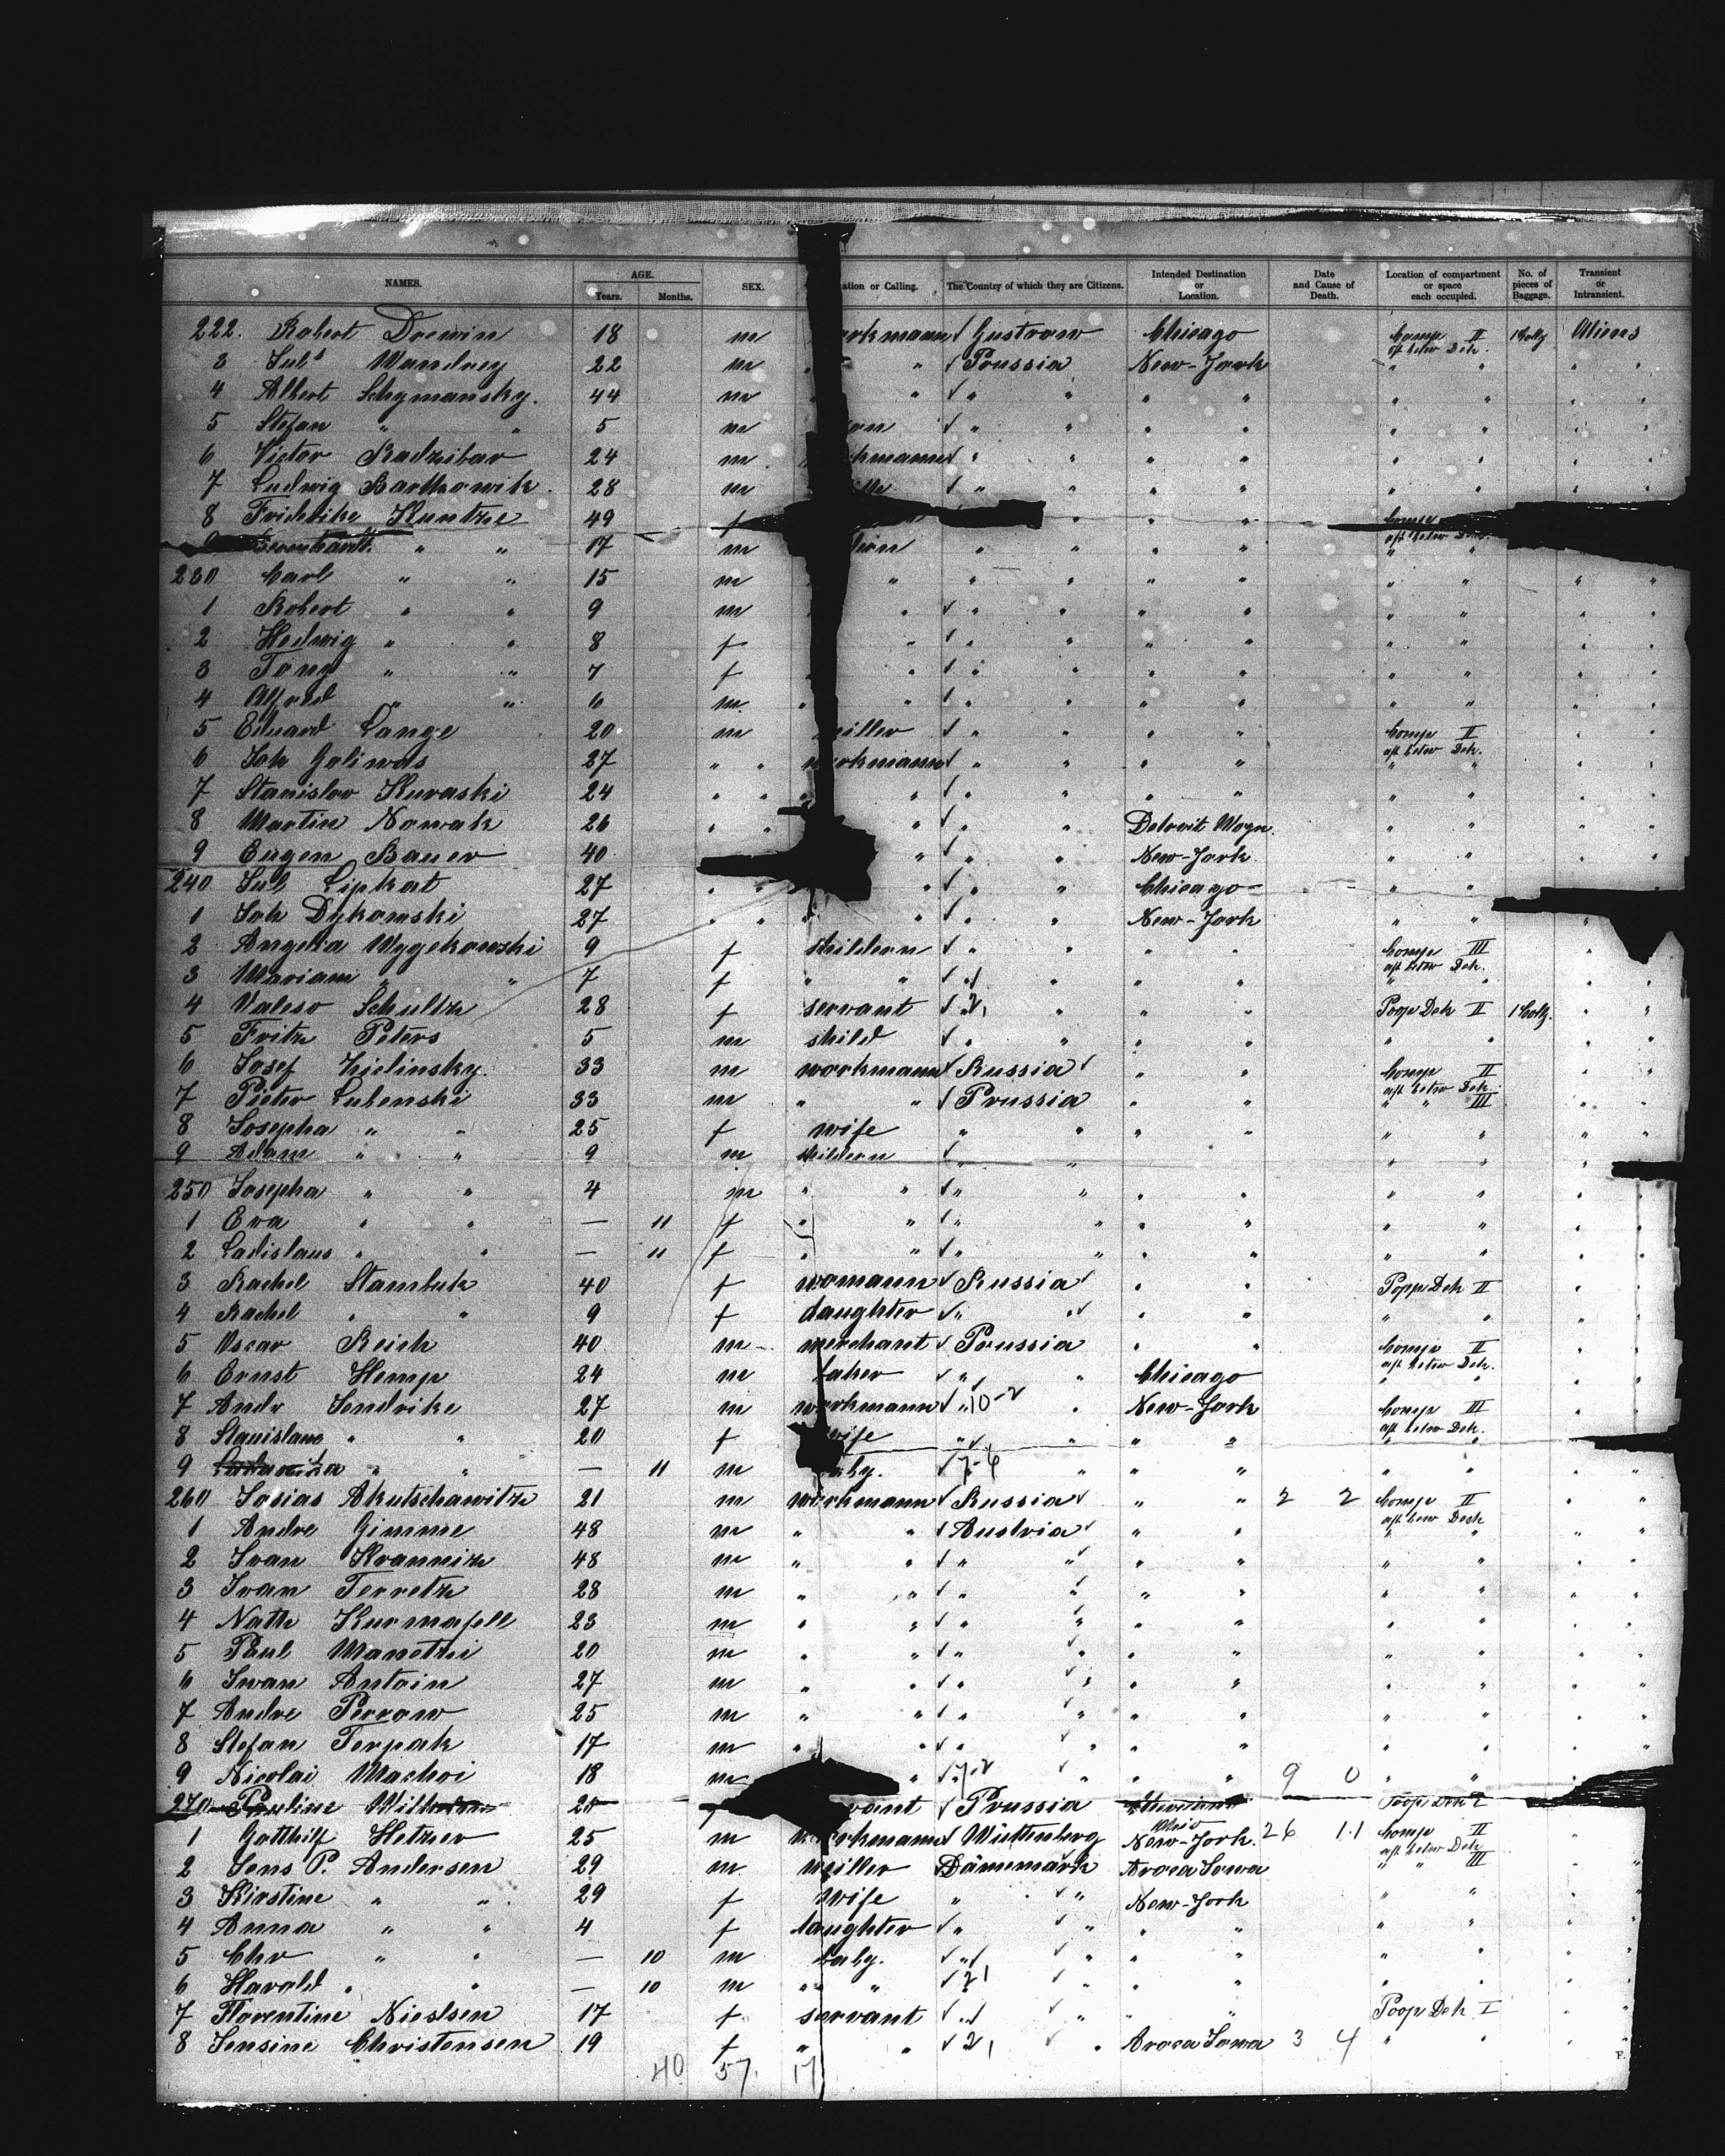 NAMES. AGE. Years. Months. SEX. ation or Calling. The Country of which they are Citizens. Intended Destination or Location. Date and Cause of Death. Location of compartment or space each occupied. No. of pieces of Baggage. Transient or Intransient.
222. Robert Drewin 18 m orkmann Gustrow Chicago Comp II aft betw Dek. 1 Colly Aliens
3 Jul⁵ Wandrey 22 m " Prussia New-York " " " "
4 Albert Schymansky. 44 m " " " " " " " " "
5 Stefan " " 5 m on " " " " " " " "
6 Victor Radzibar 24 m kmann " " " " " " " "
7 Ludwig Bartkowik. 28 m " " " " " " " "
8 Fridrike Kuntze 49 f " " " Comp aft betw Dek.
" " 17 m " " " " " "
230 Carl " " 15 m " " " " " " " " "
1 Robert " " 9 m " " " " " " " " "
2 Hedwig " " 8 f " " " " " " " " "
3 Tony " " 7 f " " " " " " " " "
4 Alfred " " 6 m " " " " " " " " " "
5 Eduard Lange 20 m iller " " " " Comp II aft betw Dek. " "
6 Joh Galiwas 27 " " workmann " " " " " " " "
7 Stanislav Kuraski 24 " " " " " " " " " " " "
8 Martin Nowak 26 " " " " " Detroit Mogn. " " " "
9 Eugen Bauer 40 " " " New-York. " "
240 Jul Lipkat 27 " " " " " Chicago " "
1 Joh Dykomski 27 " " " " " " New-York " " "
2 Angelia Wygekowski 9 f childern " " " " Comp III aft betw Dek. " "
3 Mariam " " 7 f " " " " " " " " " "
4 Valeso Schultz 28 f servant " " " " Poop Dek II 1 Colly. " "
5 Fritz Peters 5 m child " " " " " " " "
6 Josef Zielinsky. 33 m workmann Russia " " Comp II aft betw Dek. " "
7 Pieter Lubenski 33 m " " Prussia " " " " III " "
8 Josepha " " 25 f wife " " " " " " " "
9 Adam " " 9 m childern " " " " " "
250 Josepha " " 4 m " " " " " " " " " "
1 Eva " " — 11 f " " " " " " " " " "
2 Ladislaus " " — 11 f " " " " " " " " " "
3 Rachel Stambuk 40 f womann Russia " " Popp Dek II " "
4 Rachel " " 9 f daughter " " " " " " " "
5 Oscar Reich 40 m merchant Prussia " " Comp II aft betw Dek. " "
6 Ernst Hemp 24 m baker " " Chicago " " " "
7 Andr Sendrike 27 m workmann " 10-2 " New-York Comp III aft betw Dek. " "
8 Stanislaus " " 20 f wife " " " " " "
9 " " — 11 m by. 7-6 " " " " " " "
260 Josias Akutschawitz 21 m workmann Russia " " 2 2 Comp II aft betw Deck " "
1 Andre Gimme 48 m " " Austria " " " " " "
2 Ivan Kranniz 48 m " " " " " " " " " "
3 Ivan Terretz 28 m " " " " " " " " " "
4 Nath Kurmafell 23 m " " " " " " " " " "
5 Paul Manetzi 20 m " " " " " " " " " "
6 Iwan Antain 27 m " " " " " " " " " "
7 Andre Perzow 25 m " " " " " " " " " "
8 Stefan Terpak 17 m " " " " " " " " " "
9 Nicolai Machoi 18 m " 7-2 " " " 9 0 " " " "
270 Pauline vant Prussia Poop Dek
1 Gotthilf Hetzer 25 m workmann Wüttenberg Ohio New-York. 26 11 Comp II aft betw Dek "
2 Jens P. Andersen 29 m miller Dänemark Avoca Iowa " " III "
3 Kirstine " " 29 f wife " " New-York " " " "
4 Anna " " 4 f daughter " " " " " " " "
5 Chr " " — 10 m baby. " " " " " " " "
6 Harald " " — 10 m " " 21 " " " " " " "
7 Florentine Nielsen 17 f servant " " " " Poop Dek I " "
8 Jensine Christensen 19 f " " 21 " Avoca Iowa 3 4 " " " "
40 57. 17
F.